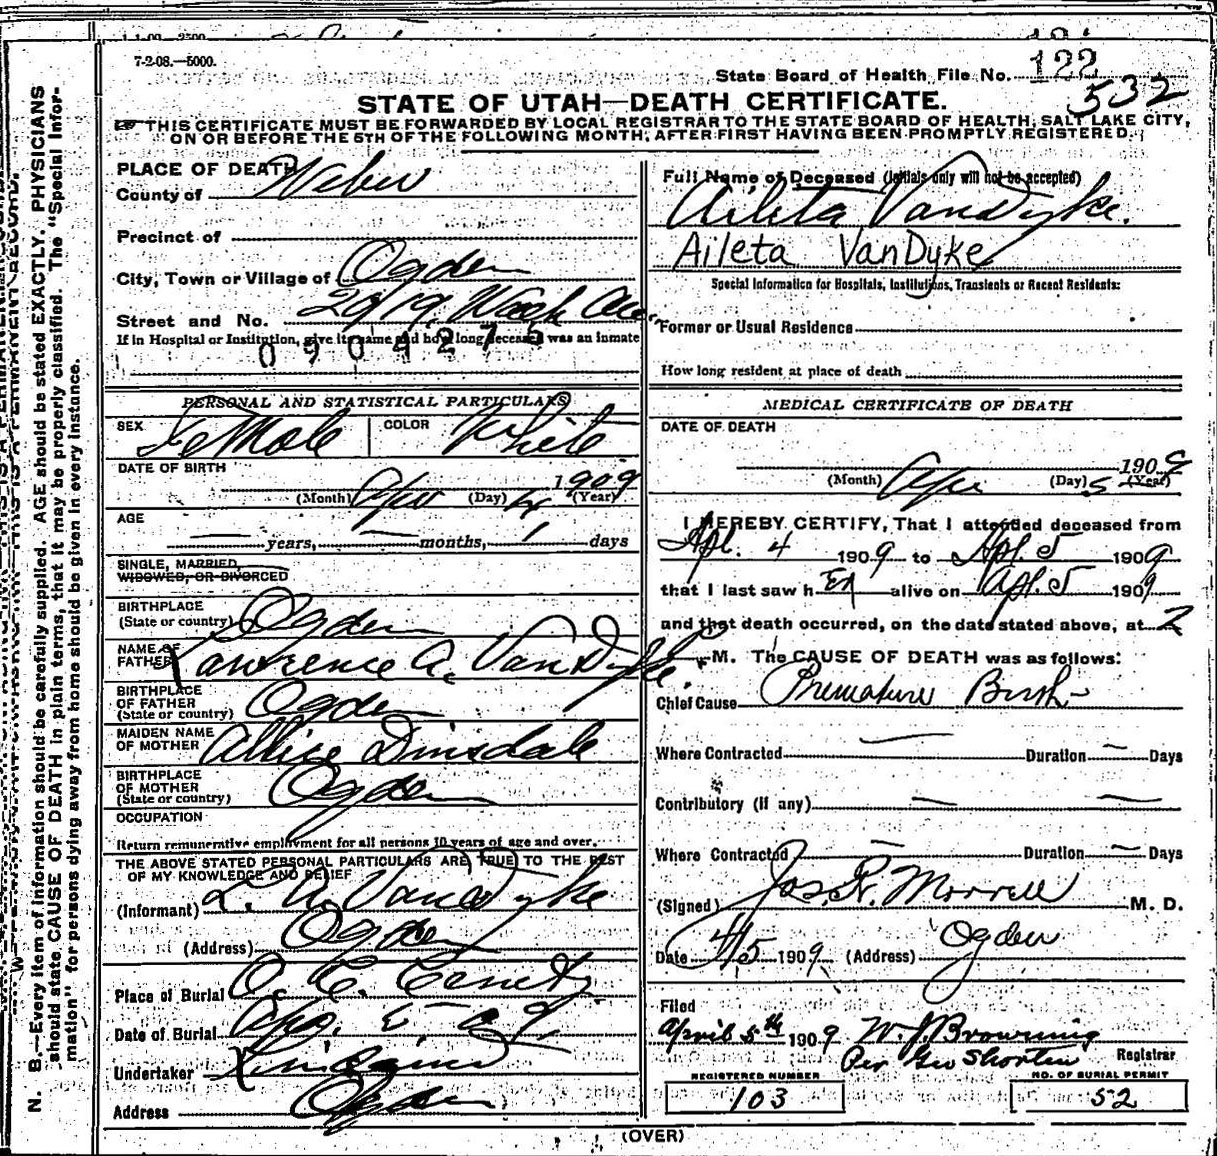 7-2-08.—5000.
State Board of Health File No. 122
532
STATE OF UTAH—DEATH CERTIFICATE.
THIS CERTIFICATE MUST BE FORWARDED BY LOCAL REGISTRAR TO THE STATE BOARD OF HEALTH, SALT LAKE CITY,
ON OR BEFORE THE 5TH OF THE FOLLOWING MONTH, AFTER FIRST HAVING BEEN PROMPTLY REGISTERED.
N. B.—Every item of information should be carefully supplied. AGE should be stated EXACTLY. PHYSICIANS
should state CAUSE OF DEATH in plain terms, that it may be properly classified. The "Special Infor-
mation" for persons dying away from home should be given in every instance.
PLACE OF DEATH
County of Weber
Precinct of
City, Town or Village of Ogden
Street and No. 2919 Wash Ave.
If in Hospital or Institution, give its name and how long deceased was an inmate
0904275
PERSONAL AND STATISTICAL PARTICULARS
SEX Female COLOR White
DATE OF BIRTH
(Month) Apr (Day) 4 1909 (Year)
AGE
— years, — months, 1 days
SINGLE, MARRIED,
WIDOWED, OR DIVORCED
BIRTHPLACE
(State or country) Ogden
NAME OF
FATHER Lawrence A. VanDyke.
BIRTHPLACE
OF FATHER
(State or country) Ogden
MAIDEN NAME
OF MOTHER Allice Dinsdale
BIRTHPLACE
OF MOTHER
(State or country) Ogden
OCCUPATION
Return remunerative employment for all persons 10 years of age and over.
THE ABOVE STATED PERSONAL PARTICULARS ARE TRUE TO THE BEST
OF MY KNOWLEDGE AND BELIEF
(Informant) L. A. VanDyke
(Address) Ogden
Place of Burial O. C. Cemetry
Date of Burial Apr. 5 - 09
Undertaker
Address Ogden
Full Name of Deceased (Initials only will not be accepted)
Aileta VanDyke.
Aileta VanDyke
Special Information for Hospitals, Institutions, Transients or Recent Residents:
Former or Usual Residence
How long resident at place of death
MEDICAL CERTIFICATE OF DEATH
DATE OF DEATH
(Month) Apr (Day) 5 1909 (Year)
I HEREBY CERTIFY, That I attended deceased from
Apl. 4 1909 to Apl. 5 1909
that I last saw h er alive on Apl. 5 1909
and that death occurred, on the date stated above, at 2
P. M. The CAUSE OF DEATH was as follows:
Chief Cause Premature Birth
Where Contracted — Duration — Days
Contributory (if any) — —
Where Contracted — Duration — Days
(Signed) Jos. R. Morrell M. D.
Date 4/5 1909 (Address) Ogden
Filed
April 5th 1909 W. J. Browning
Per Geo Shorten Registrar
REGISTERED NUMBER NO. OF BURIAL PERMIT
103 52
(OVER)